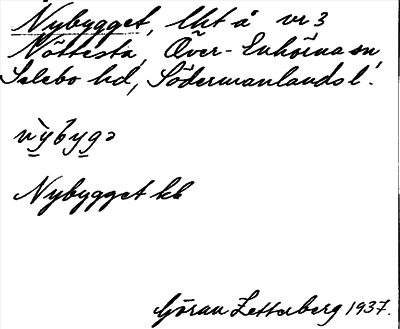 Nybygget, lht å nr 3
Nöttesta, Över-Enhörna sn
Selebo hd, Södermanlands l.
nỳbygə
Nybygget kk
Göran Zetterberg 1937.